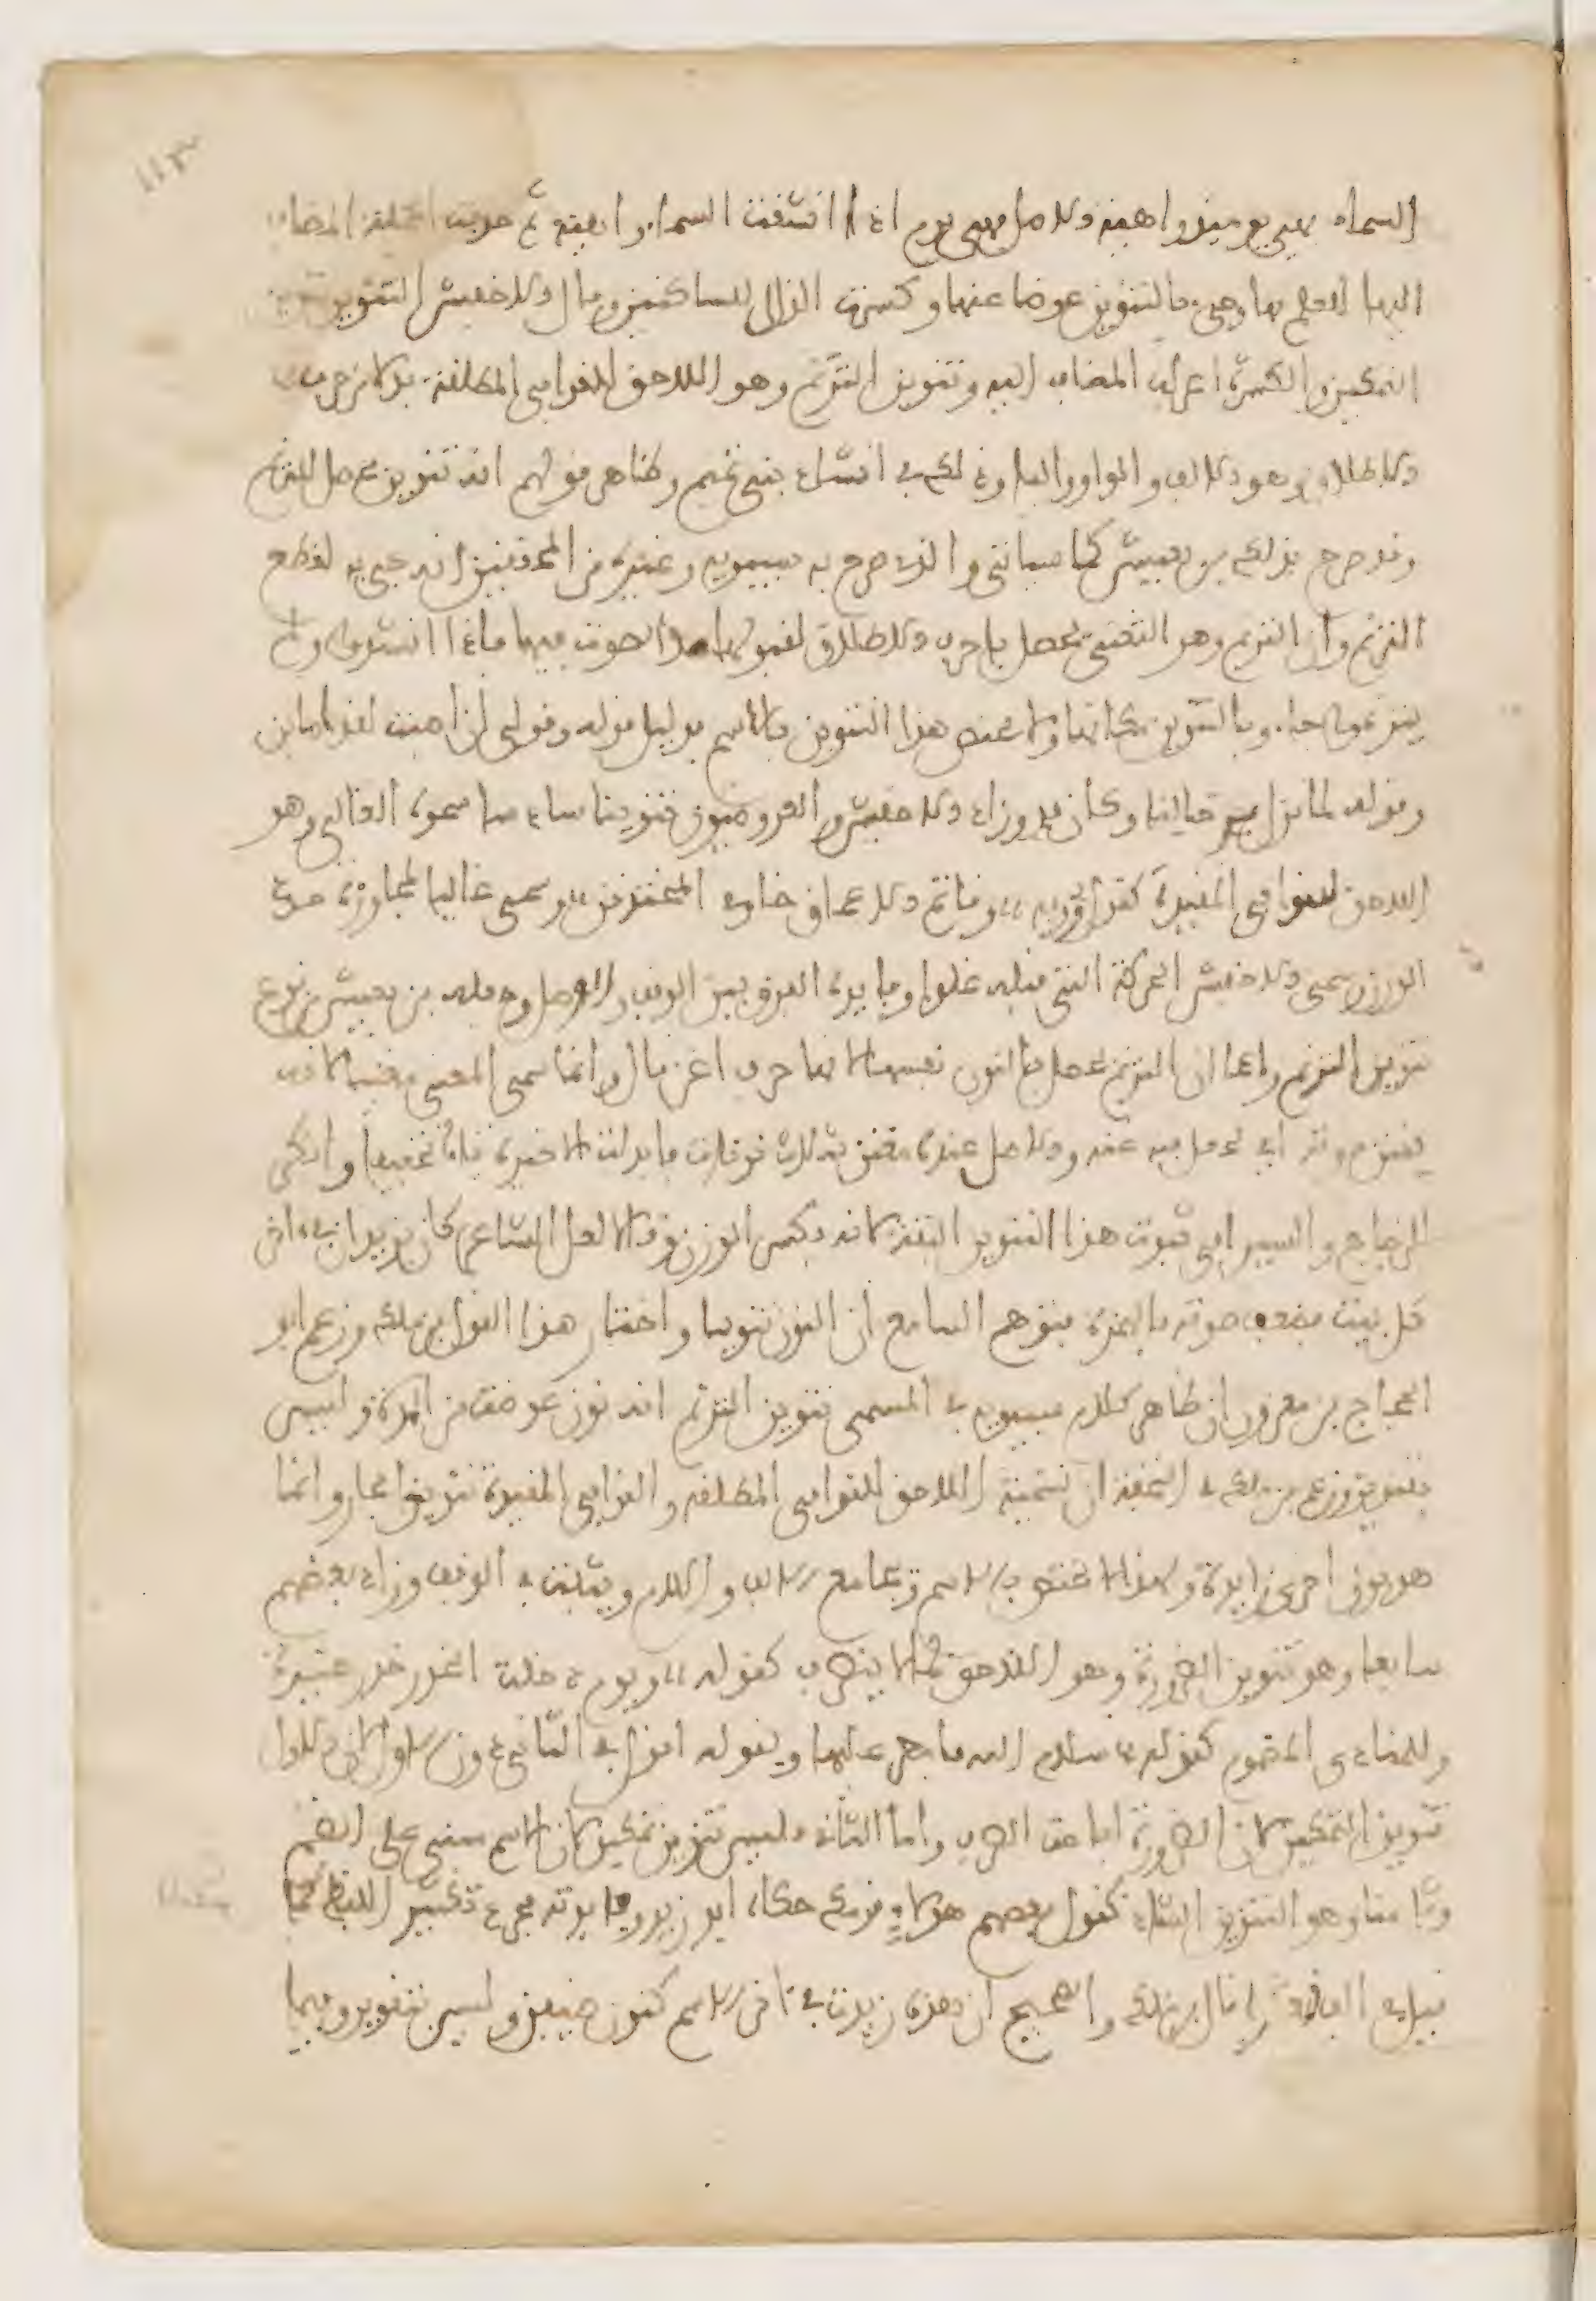 السماء فهي يومئذ واهية والاصل فهي يوم اذ انشقت السماء واهية ثم حذفت الجملة المضاف
اليها للعلم بها وجيء بالتنوين عوضا عنها وكسرت الذال للساكنين وقال الاخفش التنوين تنوين
التمكين والكسرة اعراب المضاف اليه وتنوين الترنم وهو اللاحق للقوافي المطلقة بدلا من حرف
الاطلاق وهو الالف والواو والياء وذلك في انشاد بني تميم وظاهر قولهم انه تنوين محصل للترنم
وقد صرح بذلك بن يعيش كما سياتي والذي صرح به سيبويه وغيره من المحققين انه جيء به لقطع
الترنم وان الترنم وهو التغني يحصل باحرف الاطلاق لقبولها لمد الصوت فيها فاذا انشدوا ولم
يترنموا جاءوا بالنون مكانها ولا يختص هذا التنوين بالاسم بدليل قوله وقولي ان اصبت لقد اصابن
وقوله لما تزل برحالنا وكان قدن وزاد الاخفش والعروضيون تنوينا سادسا سموه الغالي وهو
اللاحق للقوافي المقيدة كقول رؤبة وقاتم الاعماق خاوي المخترقن وسمي غاليا لمجاوزته حد
الوزن وسمى الاخفش الحركة التي قبله غلوا وفايدته الفرق بين الوقف والوصل وجعله بن يعيش من نوع
تنوين الترنم زاعما ان الترنم يحصل بالنون نفسها لانها حرف اغن قال وانما سمي المغني مغنيا لانه
يغنن صوته اي يجعل فيه غنة والاصل عنده مغنن بثلاث نونات فابدلت الاخيرة ياء تخفيفا وانكر
الزجاج والسيرافي ثبوت هذا التنوين البتة لانه يكسر الوزن وقالا لعل الشاعر كان يزيد ان في اخر
كل بيت فضعف صوته بالهمزة فتوهم السامع ان النون تنوينا واختار هذا القول بن ملك وزعم ابو
الحجاج بن معزوز ان ظاهر كلام سيبويه في المسمى تنوين الترنم انه نون عوضت من المدة وليس
بتنوين وزعم بن ملك في التحفة ان تسمية اللاحق للقوافي المطلقة والقوافي المقيدة تنوينا مجاز وانما
هو نون اخرى زايدة ولهذا لا يختص بالاسم ويجامع الالف واللام ويثبت في الوقف وزاد بعضهم
سابعا وهو تنوين الضرورة وهو اللاحق لما لا ينصرف كقوله ويوم دخلت الخدر خدر عنيزة
وللمنادى المضموم كقوله سلام الله يا مطر عليها وبقوله اقول في الثاني دون الاول لان الاول
تنوين التمكين لان الضرورة اباحت الصرف واما الثاني فليس تنوين تمكين لان الاسم مبني على الضم
وثامنا وهو التنوين الشاذ كقول بعضهم هؤلاء قومك حكاه ابو زيد وفايدته مجرد تكثير اللفظ كما
قيل في الف قبعثرى قال بن ملك والصحيح ان هذه زيدت في اخر الاسم كنون ضيفن وليس بتنوين وفيما